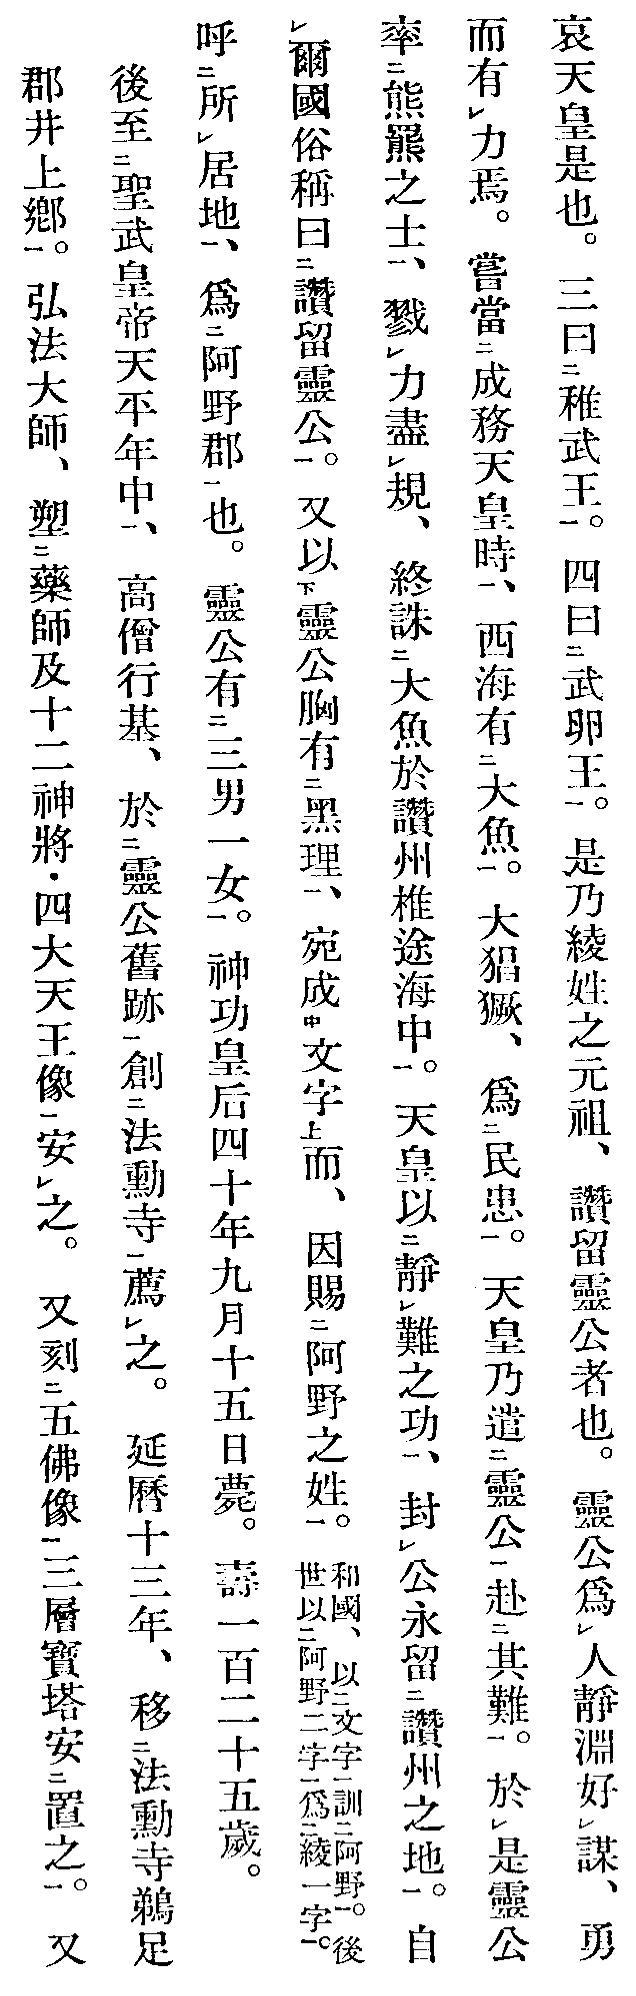 哀天皇是也。三曰㆓稚武王㆒。四曰㆓武卵王㆒。是乃綾姓之元祖、讚留靈公者也。靈公爲㆑人靜淵好㆑謀、勇
而有㆑力焉。嘗當㆓成務天皇時㆒、西海有㆓大魚㆒。大猖獗、爲㆓民患㆒。天皇乃遣㆓靈公㆒赴㆓其難㆒。於㆑是靈公
率㆓熊羆之士㆒、戮㆑力盡㆑規、終誅㆓大魚於讚州椎途海中㆒。天皇以㆓靜㆑難之功㆒、封㆑公永留㆓讚州之地㆒。自
㆑爾國俗稱曰㆓讚留靈公㆒。又以㆘靈公胸有㆓黑理㆒、宛成㆗文字㆖而、因賜㆓阿野之姓㆒。和國、以㆓文字㆒訓㆓阿野㆒。後
世以㆓阿野二字㆒爲㆓綾一字㆒。
呼㆓所㆑居地㆒、爲㆓阿野郡㆒也。靈公有㆓三男一女㆒。神功皇后四十年九月十五日薨。壽一百二十五歲。
後至㆓聖武皇帝天平年中㆒、高僧行基、於㆓靈公舊跡㆒創㆓法勳寺㆒薦㆑之。延曆十三年、移㆓法勳寺鵜足
郡井上鄕㆒。弘法大師、塑㆓藥師及十二神將・四大天王像㆒安㆑之。又刻㆓五佛像㆒三層寶塔安㆓置之㆒。又